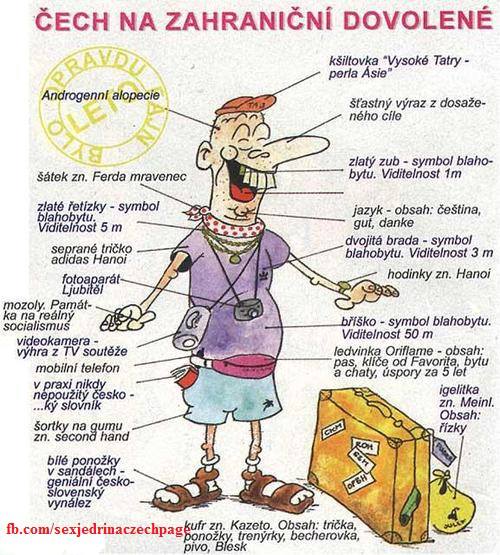 ČECH NA ZAHRANIČNÍ DOVOLENÉ
OPRAVDU
BYLO
LETO
kšiltovka "Vysoké Tatry -
perla Ásie"
Androgenní alopecie
TAJ
šťastný výraz z dosaže-
ného cíle
zlatý zub - symbol blaho-
bytu. Viditelnost 1m
šátek zn. Ferda mravenec
zlaté řetízky - symbol
blahobytu.
Viditelnost 5 m
jazyk - obsah: čeština,
gut, danke
dvojitá brada - symbol
blahobytu. Viditelnost 3 m
seprané tričko
adidas Hanoi
hodinky zn. Hanoi
fotoaparát
Ljubitěl
mozoly. Památ-
ka na reálný
socialismus
bříško - symbol blahobytu.
Viditelnost 50 m
videokamera -
výhra z TV soutěže
ledvinka Oriflame - obsah:
pas, klíče od Favorita, bytu
a chaty, úspory za 5 let
mobilní telefon
v praxi nikdy
nepoužitý česko -
...ký slovník
igelitka
zn. Meinl.
Obsah:
řízky
šortky na gumu
zn. second hand
bílé ponožky
v sandálech -
geniální česko-
slovenský
vynález
fb.com/sexjedrinaczechpage
kufr zn. Kazeto. Obsah: trička,
ponožky, trenýrky, becherovka,
pivo, Blesk